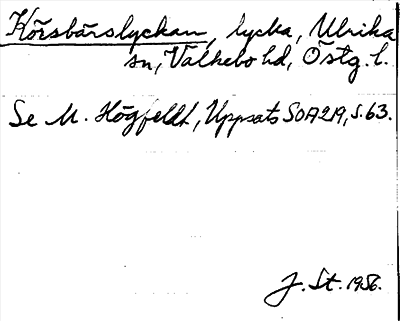 Körsbärslyckan, lycka, Ulrika
sn, Valkebo hd, Östg. l.
Se M. Högfeldt, Uppsats SOA 219, s. 63.
J. St. 1956.